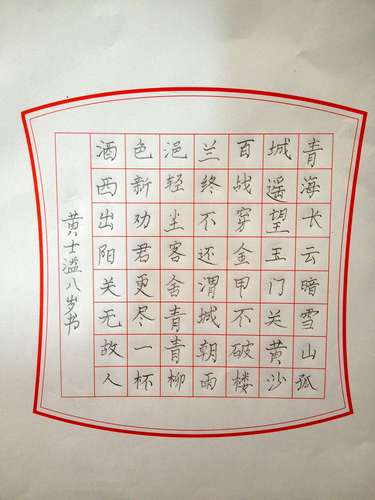 青海长云暗雪山孤
城遥望玉门关黄沙
百战穿金甲不破楼
兰终不还渭城朝雨
浥轻尘客舍青青柳
色新劝君更尽一杯
酒西出阳关无故人
黄士溢八岁书